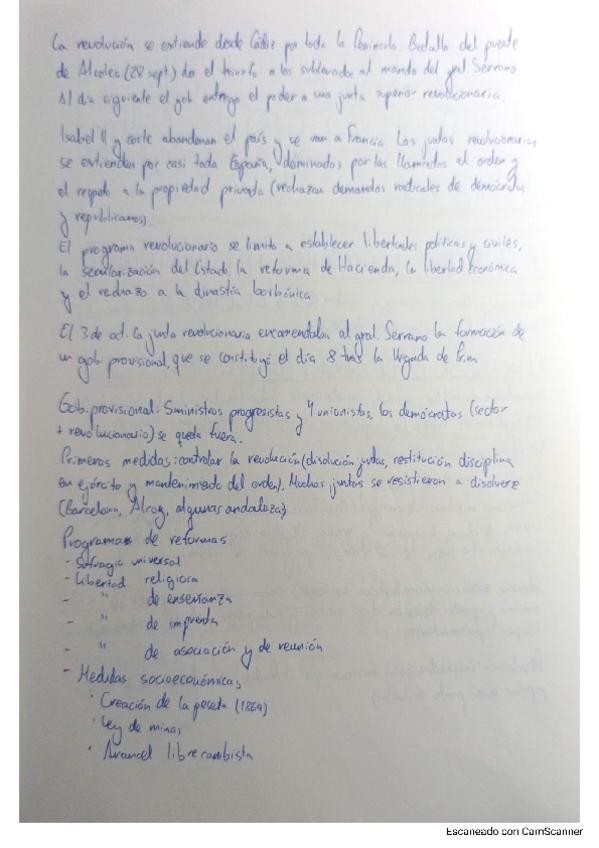 La revolución se extiende desde Cádiz por toda la Península. Batalla del puente
de Alcolea (28 sept.) da el triunfo a los sublevados al mando del gral. Serrano
Al día siguiente el gob entrega el poder a una junta superior revolucionaria.
Isabel II y corte abandonan el país y se van a Francia. Las juntas revolucionarias
se extienden por casi toda España, dominadas por las llamadas al orden y
el respeto a la propiedad privada (rechazan demandas radicales de demócratas
y republicanos).
El programa revolucionario se limita a establecer libertades políticas y civiles,
la secularización del Estado, la reforma de Hacienda, la libertad económica
y el rechazo a la dinastía borbónica
El 3 de oct. la junta revolucionaria encomendaba al gral. Serrano la formación de
un gob provisional, que se constituyó el día 8 tras la llegada de Prim
Gob. provisional: 5 ministros progresistas y 4 unionistas, los demócratas (sector
+ revolucionario) se queda fuera.
Primeras medidas: controlar la revolución (disolución juntas, restitución disciplina
en ejército y mantenimiento del orden). Muchas juntas se resistieron a disolverse
(Barcelona, Alcoy, algunas andaluzas)
Programas de reformas
- Sufragio universal
- Libertad religiosa
- " de enseñanza
- " de imprenta
- " de asociación y de reunión
- Medidas socioeconómicas
· Creación de la peseta (1869)
· Ley de minas
· Arancel librecambista
Escaneado con CamScanner